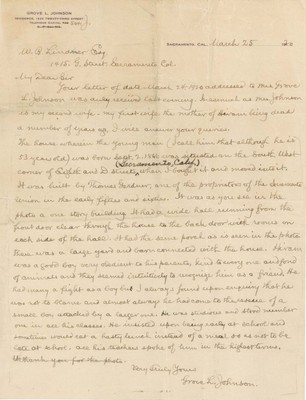 GROVE L. JOHNSON
SACRAMENTO, CAL. March 25
W. B.
1915 G. Street. Sacramento Cal.
My Dear Sir
Your letter of date March 24-1920 addressed to Mrs Grove
L. Johnson was duly received last evening. Inasmuch as Mrs Johnson
is my second wife, my first wife the mother of Hiram being dead
a number of years ago I will answer your queries.
The house wherein the young man (I call him that although he is
53 years old) was born Sept. 2. 1866 was situated on the South West
(Sacramento, Calif.)
corner of Eighth and D Streets, when I bought it and moved into it.
It was built by Thomas Gardiner, one of the proprietors of the Sacramento
Union in the early fifties and sixties. It was as you see in the
photo a one story building. It had a wide hall running from the
front door clear through the house to the back door with rooms on
each side of the hall. It had the same porch as is seen in the photo
There was a large yard and barn connected with the house. Hiram
was a good boy, very obedient to his parents, kind to every one and fond
of animals and they seemed intuitively to recognize him as a friend. He
had many a fight as a boy but I always found upon enquiry that he
was not to blame and almost always he had come to the rescue of a
small boy attacked by a larger one. He was studious and stood number
one in all his classes. He insisted upon being early at school and
sometimes would eat a hasty lunch instead of a meal so as not to be
late at school. All his teachers spoke of him in the highest terms.
thank you for the photo.
Very Truly Yours
Grove L. Johnson.